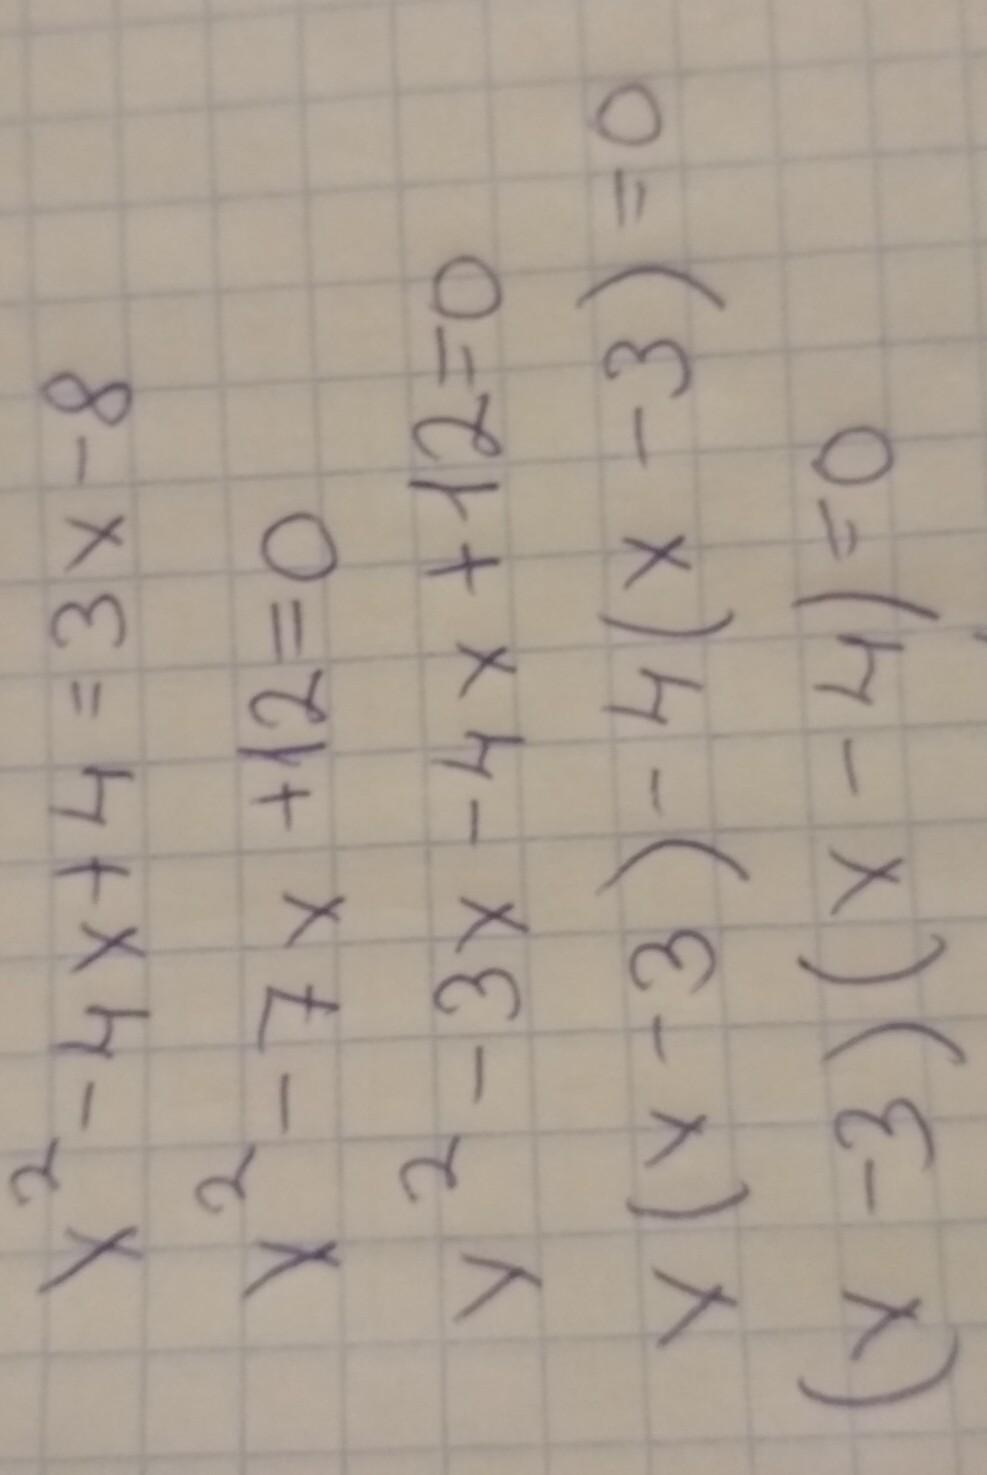 x² - 4x + 4 = 3x - 8
x² - 7x + 12 = 0
x² - 3x - 4x + 12 = 0
x(x - 3) - 4(x - 3) = 0
(x - 3)(x - 4) = 0